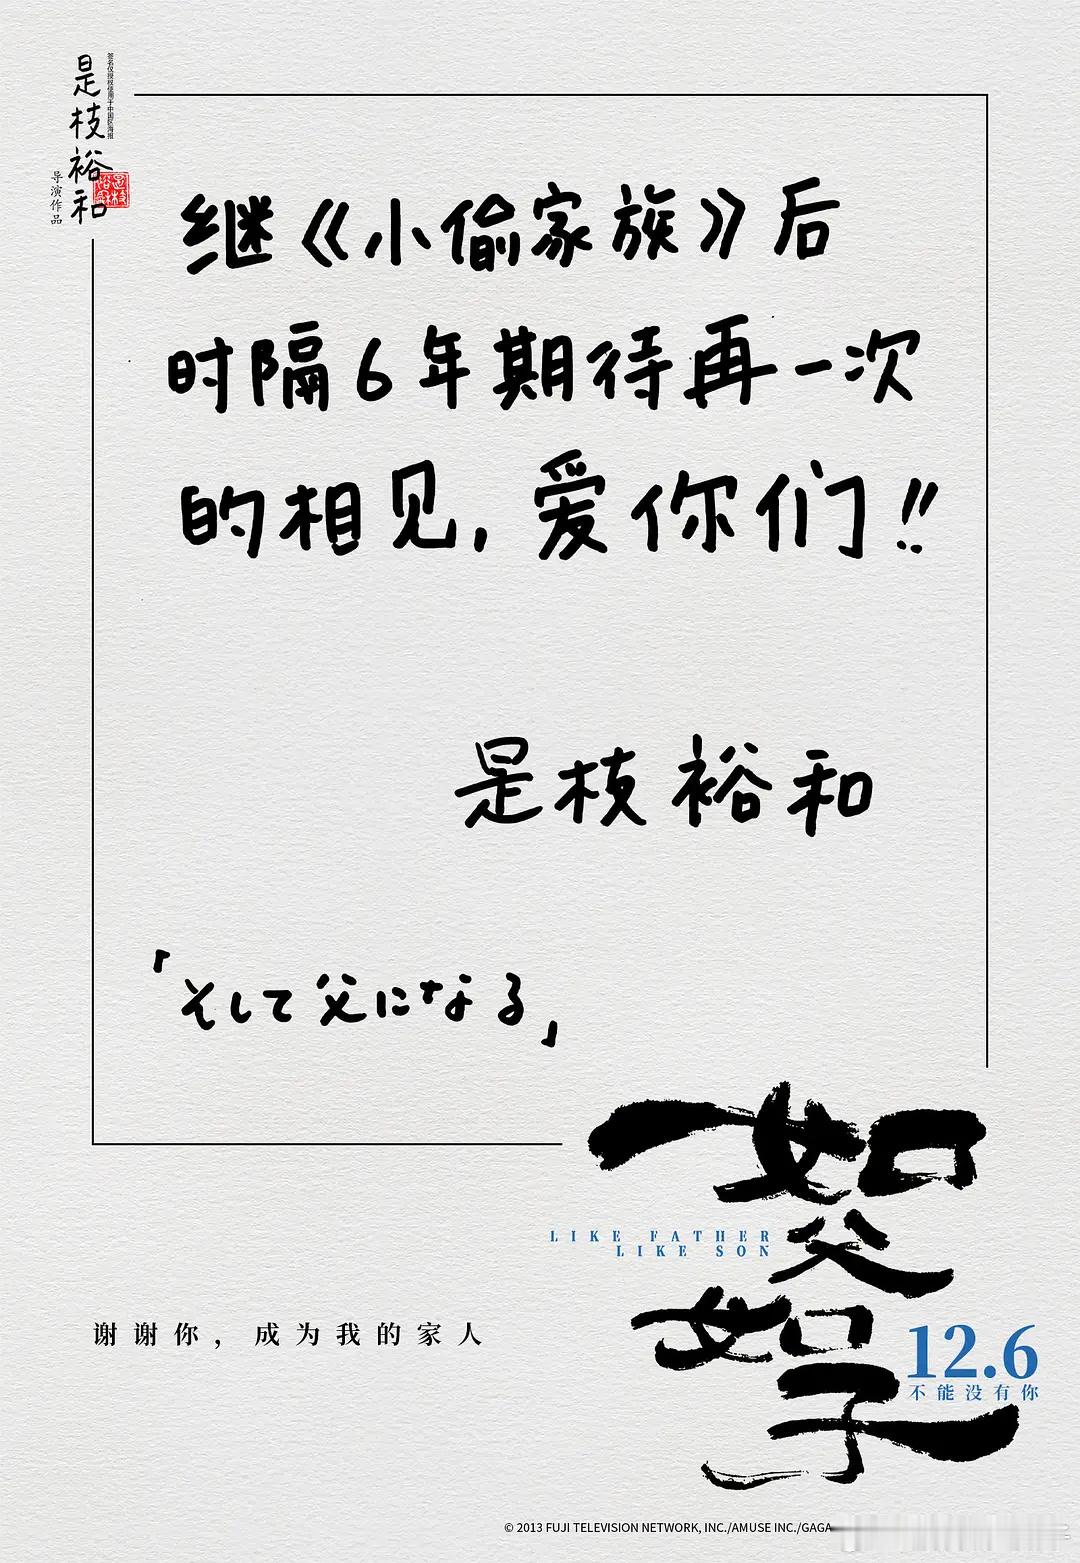 是枝裕和
签名仅授权使用于中国区海报
导演作品
是枝裕和
继《小偷家族》后
时隔6年期待再一次
的相见,爱你们!!
是枝裕和
「そして父になる」
如父如子
LIKE FATHER
LIKE SON
谢谢你，成为我的家人
12.6
不能没有你
© 2013 FUJI TELEVISION NETWORK, INC./AMUSE INC./GAGA